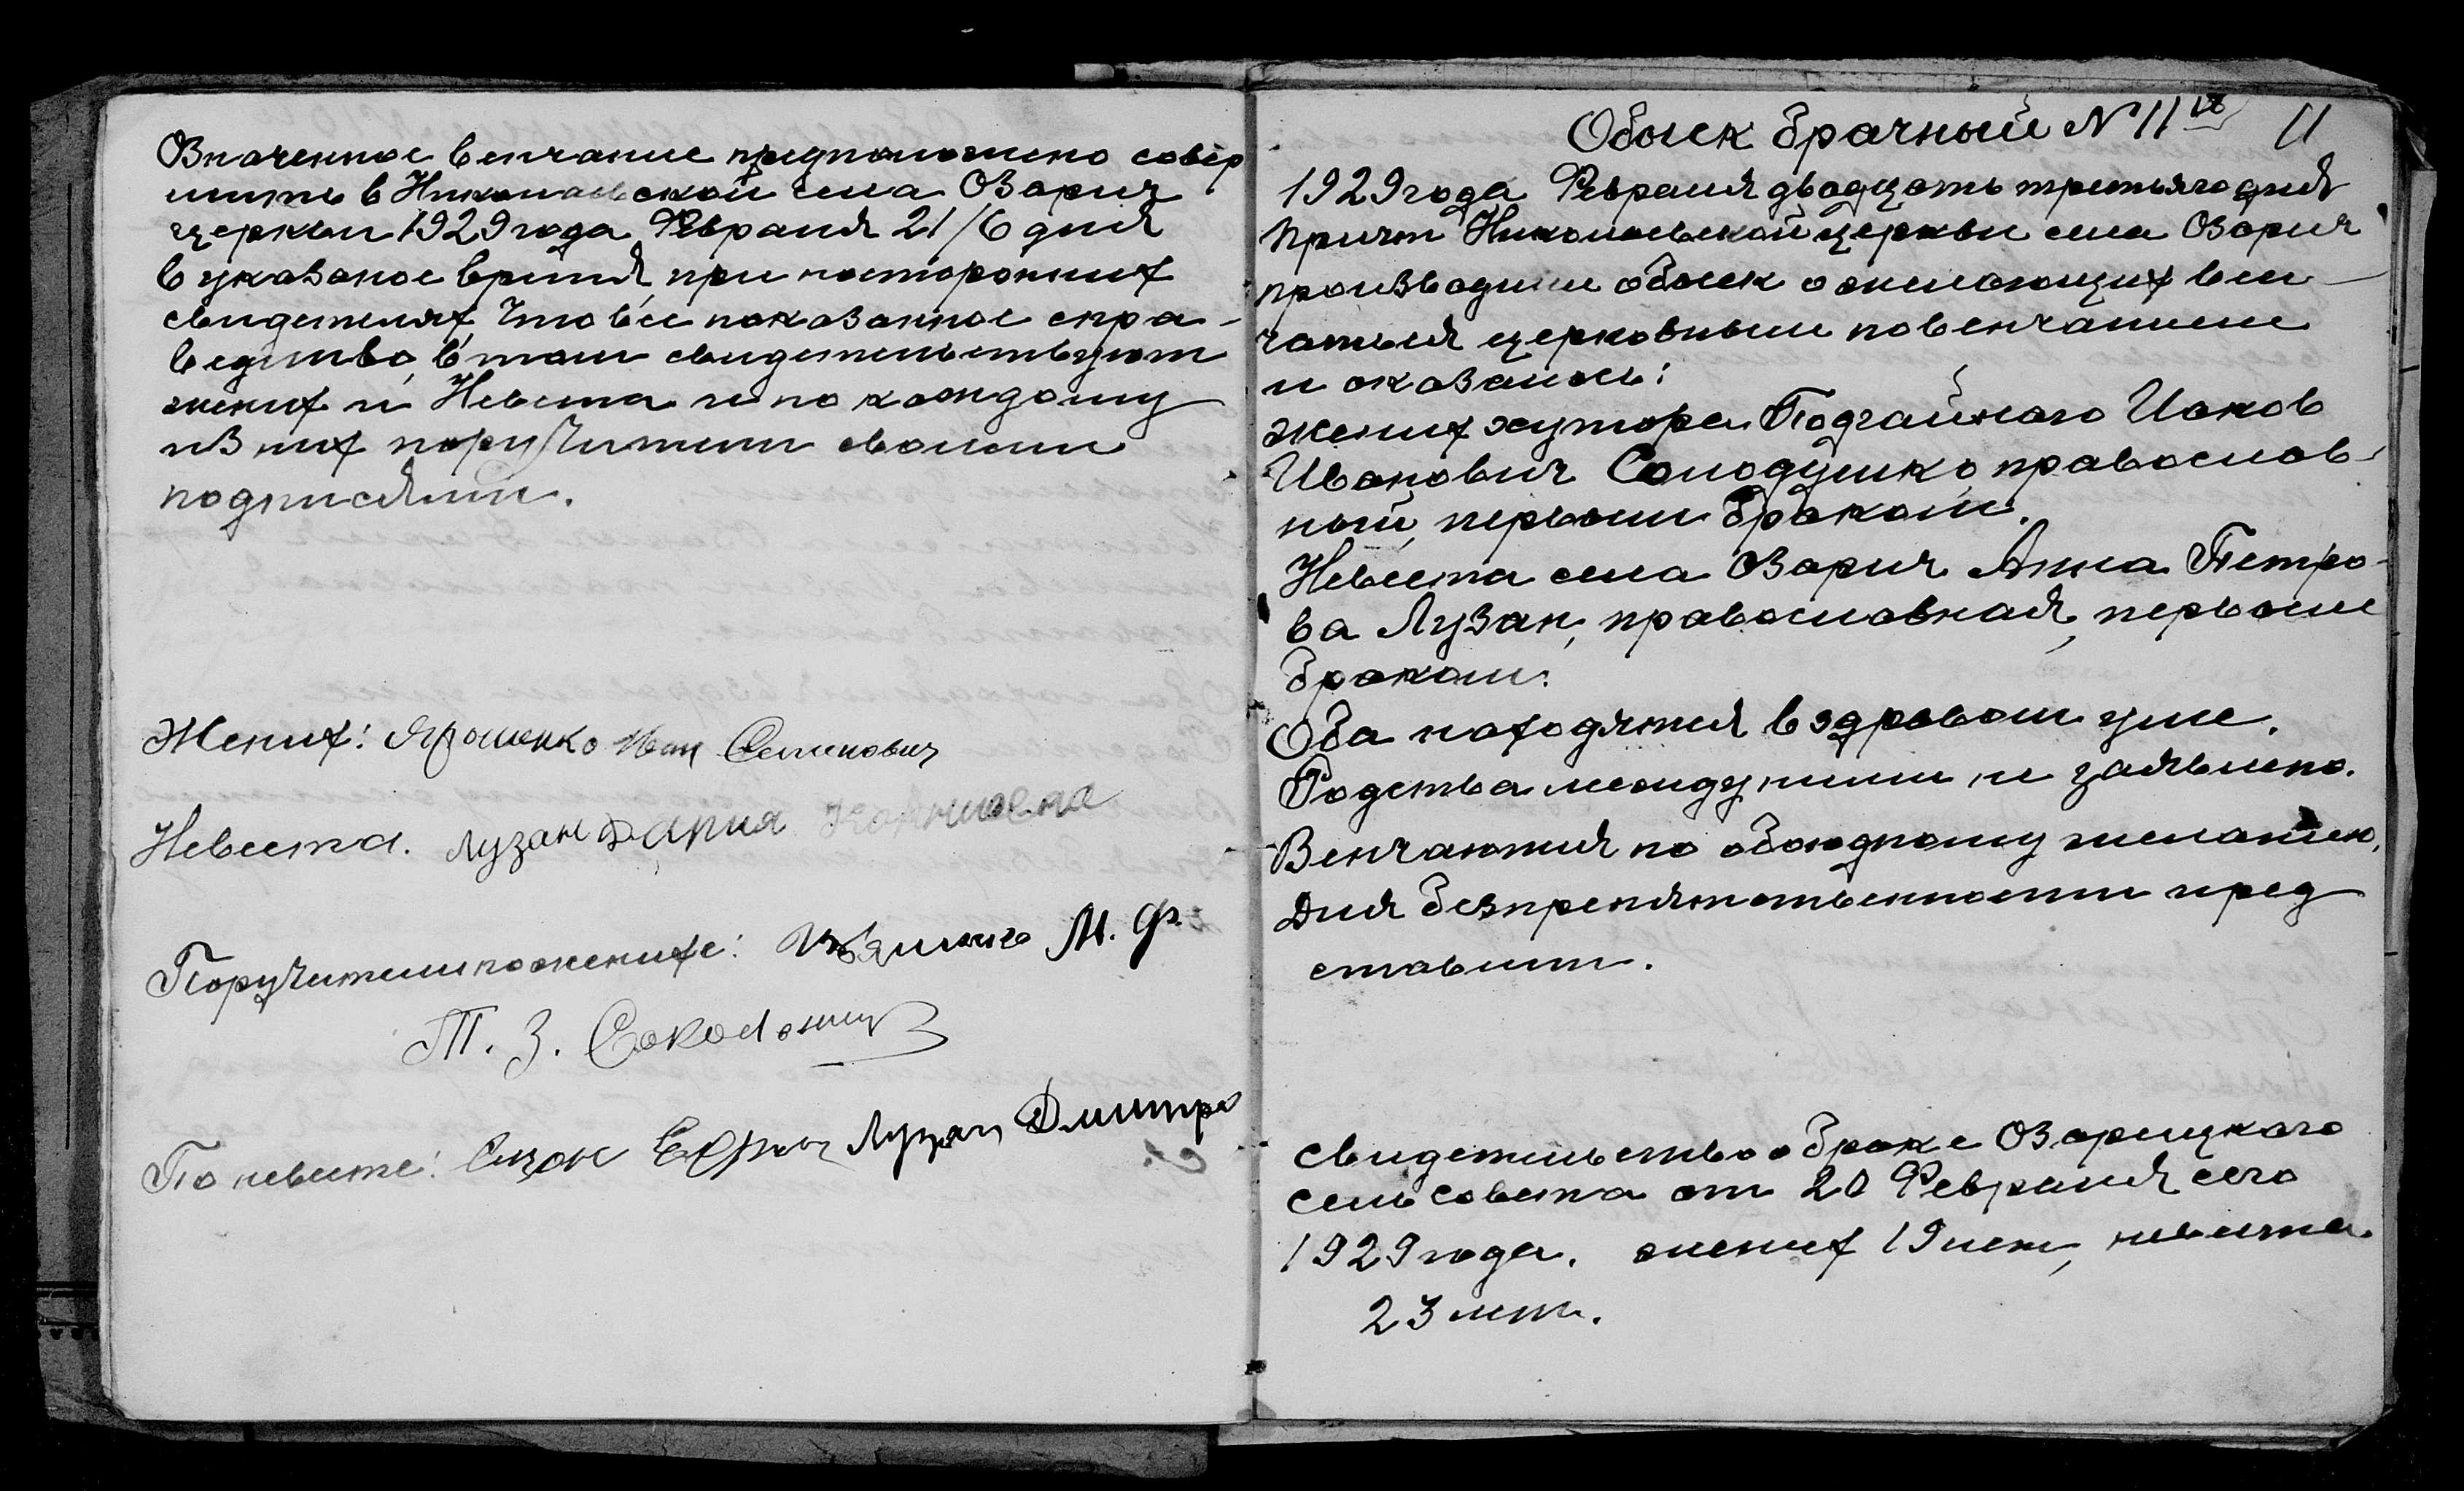 Означенное венчание предположено совер
шить в Николаевской села Озарич
церкви 1929 года Февраля 21/6 дня
в указаное время, при посторонних
свидетелях, что все показанное спра-
ведливо, в том свидетельствуют
жених и Невеста и по каждому
из них поручители своими
подписями.
Жених: Ярошенко Иван Семенович
Невеста. Лузан Дария Корниевна
Поручители по женихе: М. Ф.
Т. З.
По невесте: Лузан Дмитро
Обыск брачный N 11й 11
1929 года Февраля двадцать третьяго дня
Причт Николаевской церкви села Озарич
производили обыск о желающих вен-
чаться церковным повенчанием
и оказалось:
жених хутора Подгайного Иаков
Иванович Солодушко, православ-
ный, первым браком.
Невеста села Озарич Анна Петро-
ва Лузан, православная, первым
браком.
Оба находятся в здравом уме.
Родства между ними не заявлено.
Венчаются по обоюдному желанию.
Для безпрепятственности пред
ставили.
свидетельство о браке Озарицкого
сельсовета от 20 Февраля сего
1929 года. жених 19 лет, невеста
23 лет.